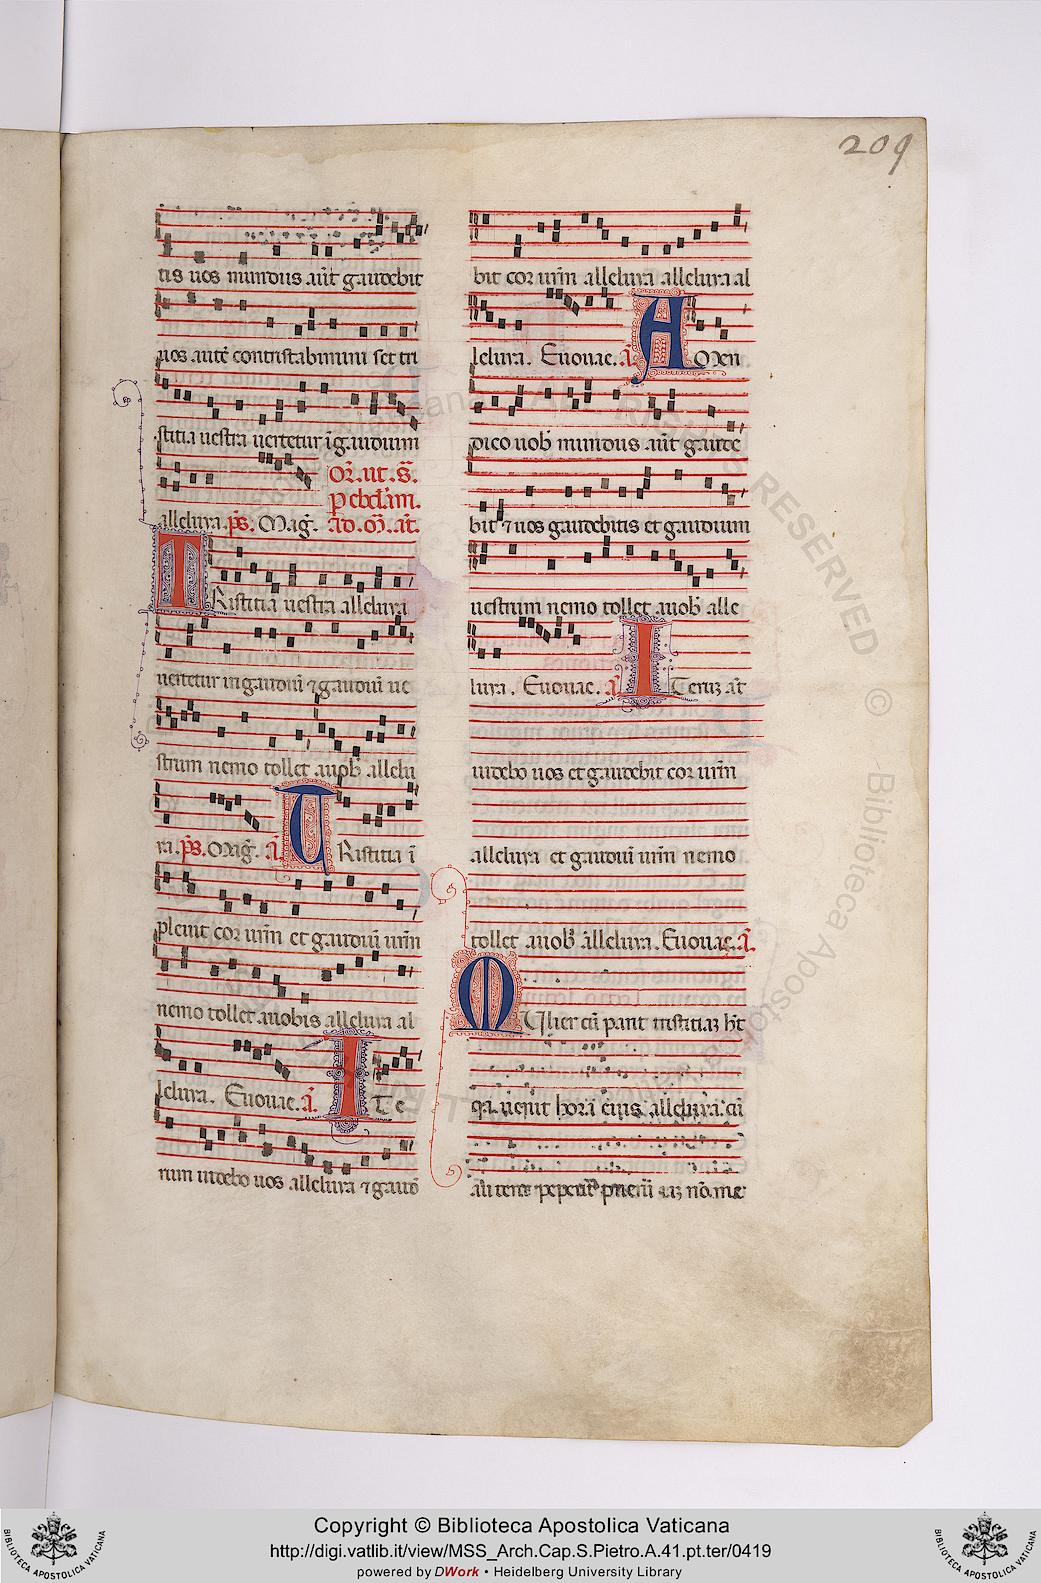 209
tis uos mundus aut̄ gaudebit
uos autē contristabimini set tri
stitia uestra uertetur ī gaudium
alleluya. p̄s. Maḡ. or̄. ut. s̄.
p ebd'am.
Ad. m̄. an̄.
TRistitia uestra alleluya
uertetur in gaudiū ⁊ gaudiū ue
strum nemo tollet auob' allelu
ya. p̄s. Maḡ. a. TRistitia ī
pleuit cor urm̄ et gaudiū urm̄
nemo tollet auobis alleluya al
leluya. Euouae. a. ITe
rum uidebo uos alleluya ⁊ gaud
bit cor urm̄ alleluya alleluya al
leluya. Euouae. a. AMen
dico uob' mundus aut̄ gaude
bit ⁊ uos gaudebitis et gaudium
uestrum nemo tollet auob' alle
luya. Euouae. a. ITerū at̄
uidebo uos et gaudebit cor urm̄
alleluya et gaudiū urm̄ nemo
tollet auob' alleluya. Euouae. a.
MUlier cū parit tristitiaz h't
qa uenit hora eius alleluya. cū
aut̄ pepit puerū iaz nō. me
Copyright © Biblioteca Apostolica Vaticana
http://digi.vatlib.it/view/MSS_Arch.Cap.S.Pietro.A.41.pt.ter/0419
powered by DWork • Heidelberg University Library
BIBLIOTECA APOSTOLICA VATICANA
BIBLIOTECA APOSTOLICA VATICANA